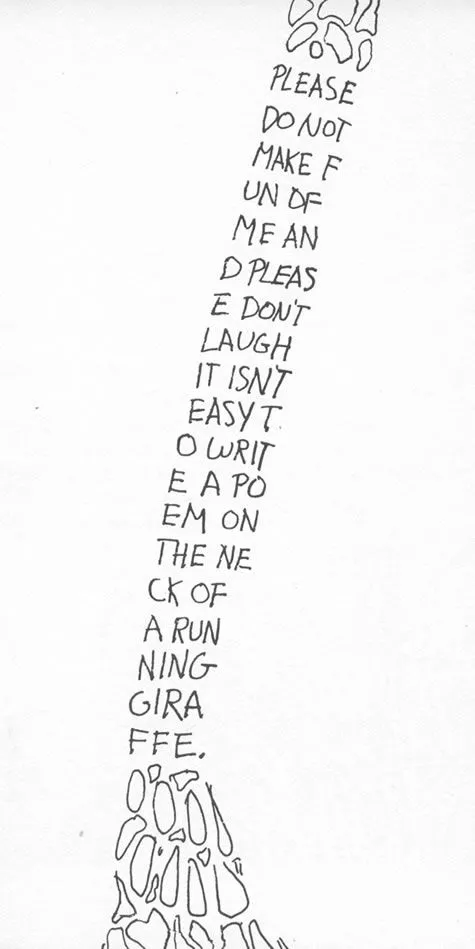 PLEASE
DO NOT
MAKE F
UN OF
ME AN
D PLEAS
E DON'T
LAUGH
IT ISN'T
EASY T
O WRIT
E A PO
EM ON
THE NE
CK OF
A RUN
NING
GIRA
FFE.